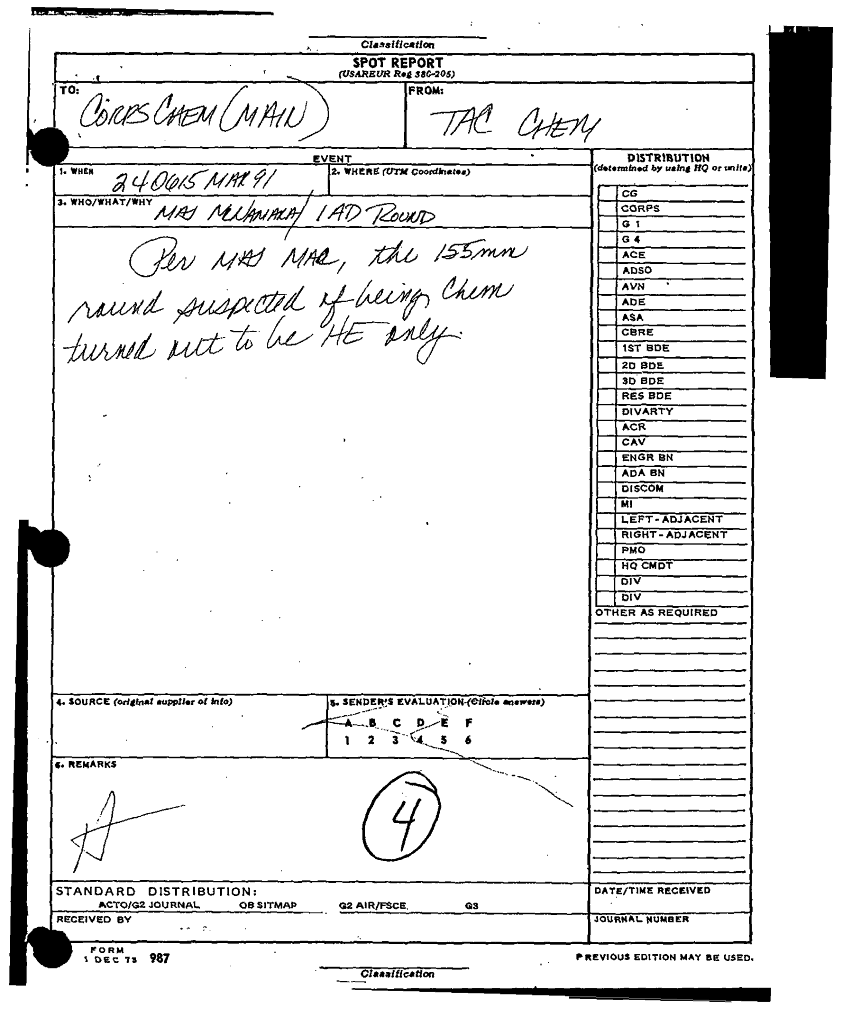 Classification
SPOT REPORT
(USAREUR Reg 380-205)
TO: CORPS CHEM (MAIN)
FROM: TAC CHEM
EVENT
1. WHEN 240615 MAR 91
2. WHERE (UTM Coordinates)
3. WHO/WHAT/WHY MAJ McNAMARA / 1 AD ROUND
Per MAJ MAC, the 155mm
round suspected of being Chem
turned out to be HE only.
DISTRIBUTION
(determined by using HQ or units)
CG
CORPS
G 1
G 4
ACE
ADSO
AVN
ADE
ASA
CBRE
1ST BDE
2D BDE
3D BDE
RES BDE
DIVARTY
ACR
CAV
ENGR BN
ADA BN
DISCOM
MI
LEFT-ADJACENT
RIGHT-ADJACENT
PMO
HQ CMDT
DIV
DIV
OTHER AS REQUIRED
4. SOURCE (original supplier of info)
5. SENDER'S EVALUATION (Circle answers)
A B C D E F
1 2 3 4 5 6
6. REMARKS
4
STANDARD DISTRIBUTION:
ACTO/G2 JOURNAL OB SITMAP G2 AIR/FSCE G3
RECEIVED BY
DATE/TIME RECEIVED
JOURNAL NUMBER
FORM
1 DEC 73 987
PREVIOUS EDITION MAY BE USED.
Classification